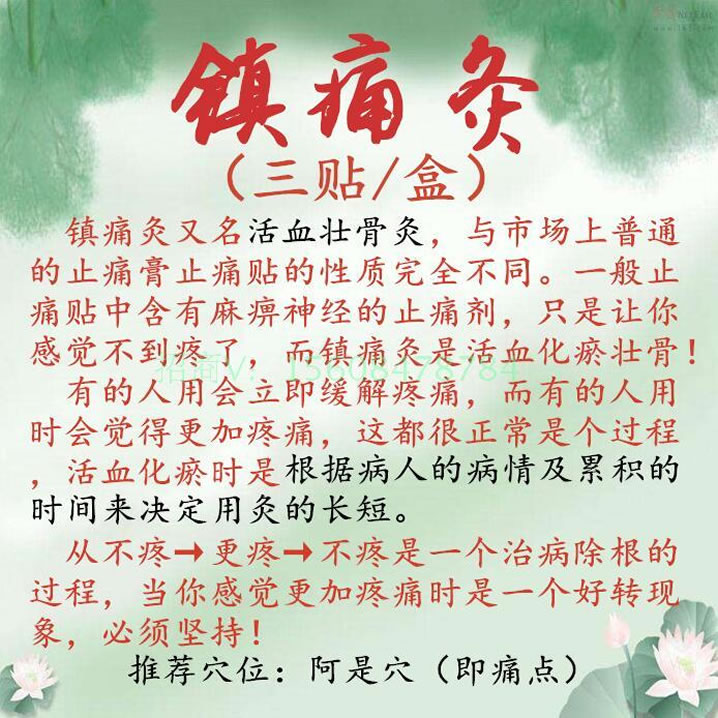 www.163.com
镇痛灸
（三贴/盒）
镇痛灸又名活血壮骨灸，与市场上普通
的止痛膏止痛贴的性质完全不同。一般止
痛贴中含有麻痹神经的止痛剂，只是让你
感觉不到疼了，而镇痛灸是活血化瘀壮骨！
招商V：15608478784
有的人用会立即缓解疼痛，而有的人用
时会觉得更加疼痛，这都很正常是个过程
，活血化瘀时是根据病人的病情及累积的
时间来决定用灸的长短。
从不疼→更疼→不疼是一个治病除根的
过程，当你感觉更加疼痛时是一个好转现
象，必须坚持！
推荐穴位：阿是穴（即痛点）